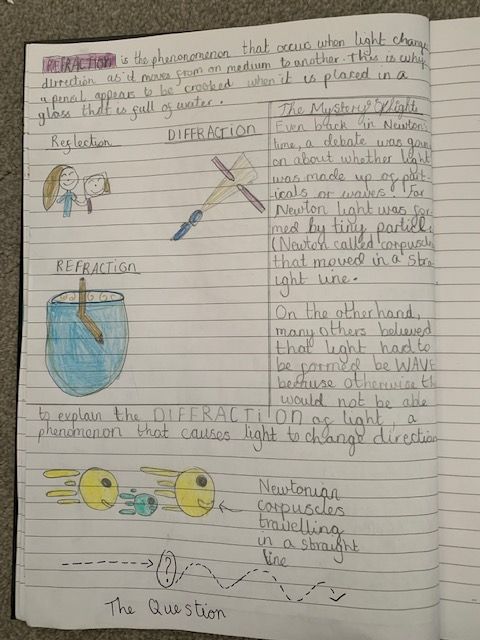 REFRACTION is the phenonomenon that occus when light change
direction as it moves from on medium to another. This is why
a pencil appears to be crooked when it is placed in a
glass that is full of water.
Reglection
DIFFRACTION
REFRACTION
The Mystery of light
Even back in Newton's
time, a debate was going
on about whether light
was made up of part-
icals or waves! For
Newton light was for-
med by tiny particl
(Newton called corpuscles
that moved in a stra-
ight line.
On the otherhand,
many others believed
that light had to
be formed be WAVE
because otherwise th
would not be able
to explain the DIFFRACTION of light, a
phenomenon that causes light to change direction
Newtonian
corpuscles
travelling
in a straight
line
?
The Question